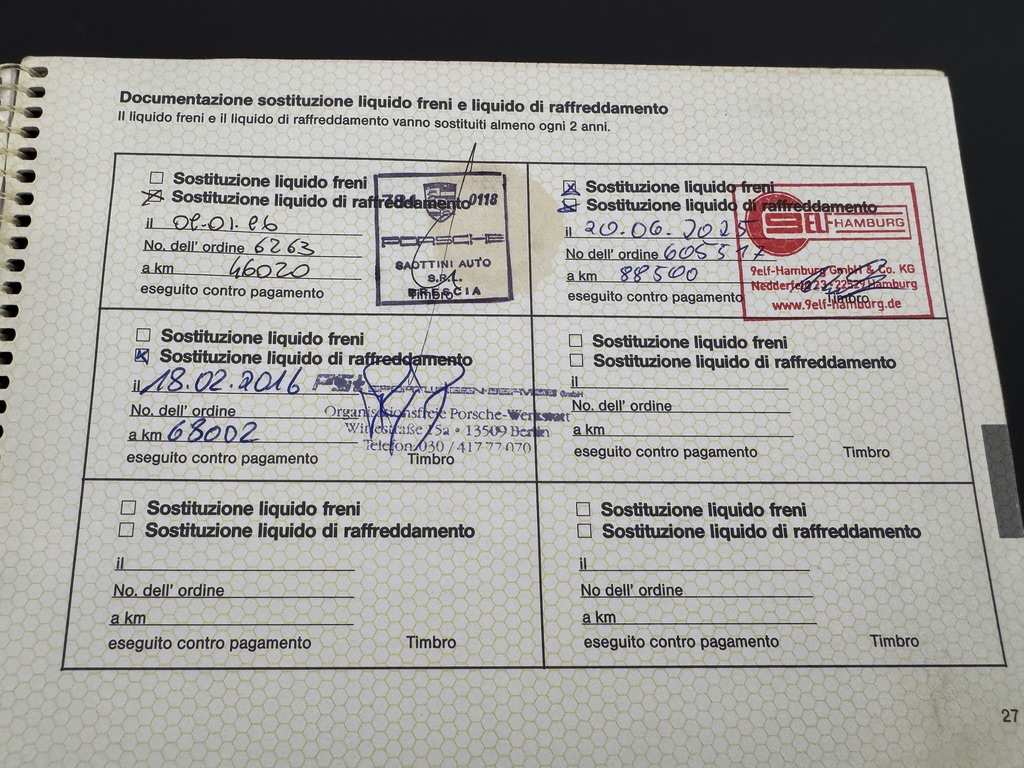 Documentazione sostituzione liquido freni e liquido di raffreddamento
Il liquido freni e il liquido di raffreddamento vanno sostituiti almeno ogni 2 anni.
Sostituzione liquido freni
Sostituzione liquido di raffreddamento
il
No. dell' ordine 6263
a km 46020
eseguito contro pagamento
Timbro
0118
PORSCHE
SAOTTINI AUTO
S.R.L.
BRESCIA
Sostituzione liquido freni
Sostituzione liquido di raffreddamento
il 20.06.2025
No dell' ordine 605517
a km 88500
eseguito contro pagamento
Timbro
9ELF-HAMBURG
9elf-Hamburg GmbH & Co. KG
Nedderfeld 23 - 22529 Hamburg
www.9elf-hamburg.de
Sostituzione liquido freni
Sostituzione liquido di raffreddamento
il 18.02.2016
No. dell' ordine
a km 68002
eseguito contro pagamento
Timbro
GmbH
Organisationsfreie Porsche-Werkstatt
15a • 13509 Berlin
Telefon 030 / 417 77 070
Sostituzione liquido freni
Sostituzione liquido di raffreddamento
il
No. dell' ordine
a km
eseguito contro pagamento
Timbro
Sostituzione liquido freni
Sostituzione liquido di raffreddamento
il
No. dell' ordine
a km
eseguito contro pagamento
Timbro
Sostituzione liquido freni
Sostituzione liquido di raffreddamento
il
No. dell' ordine
a km
eseguito contro pagamento
Timbro
27